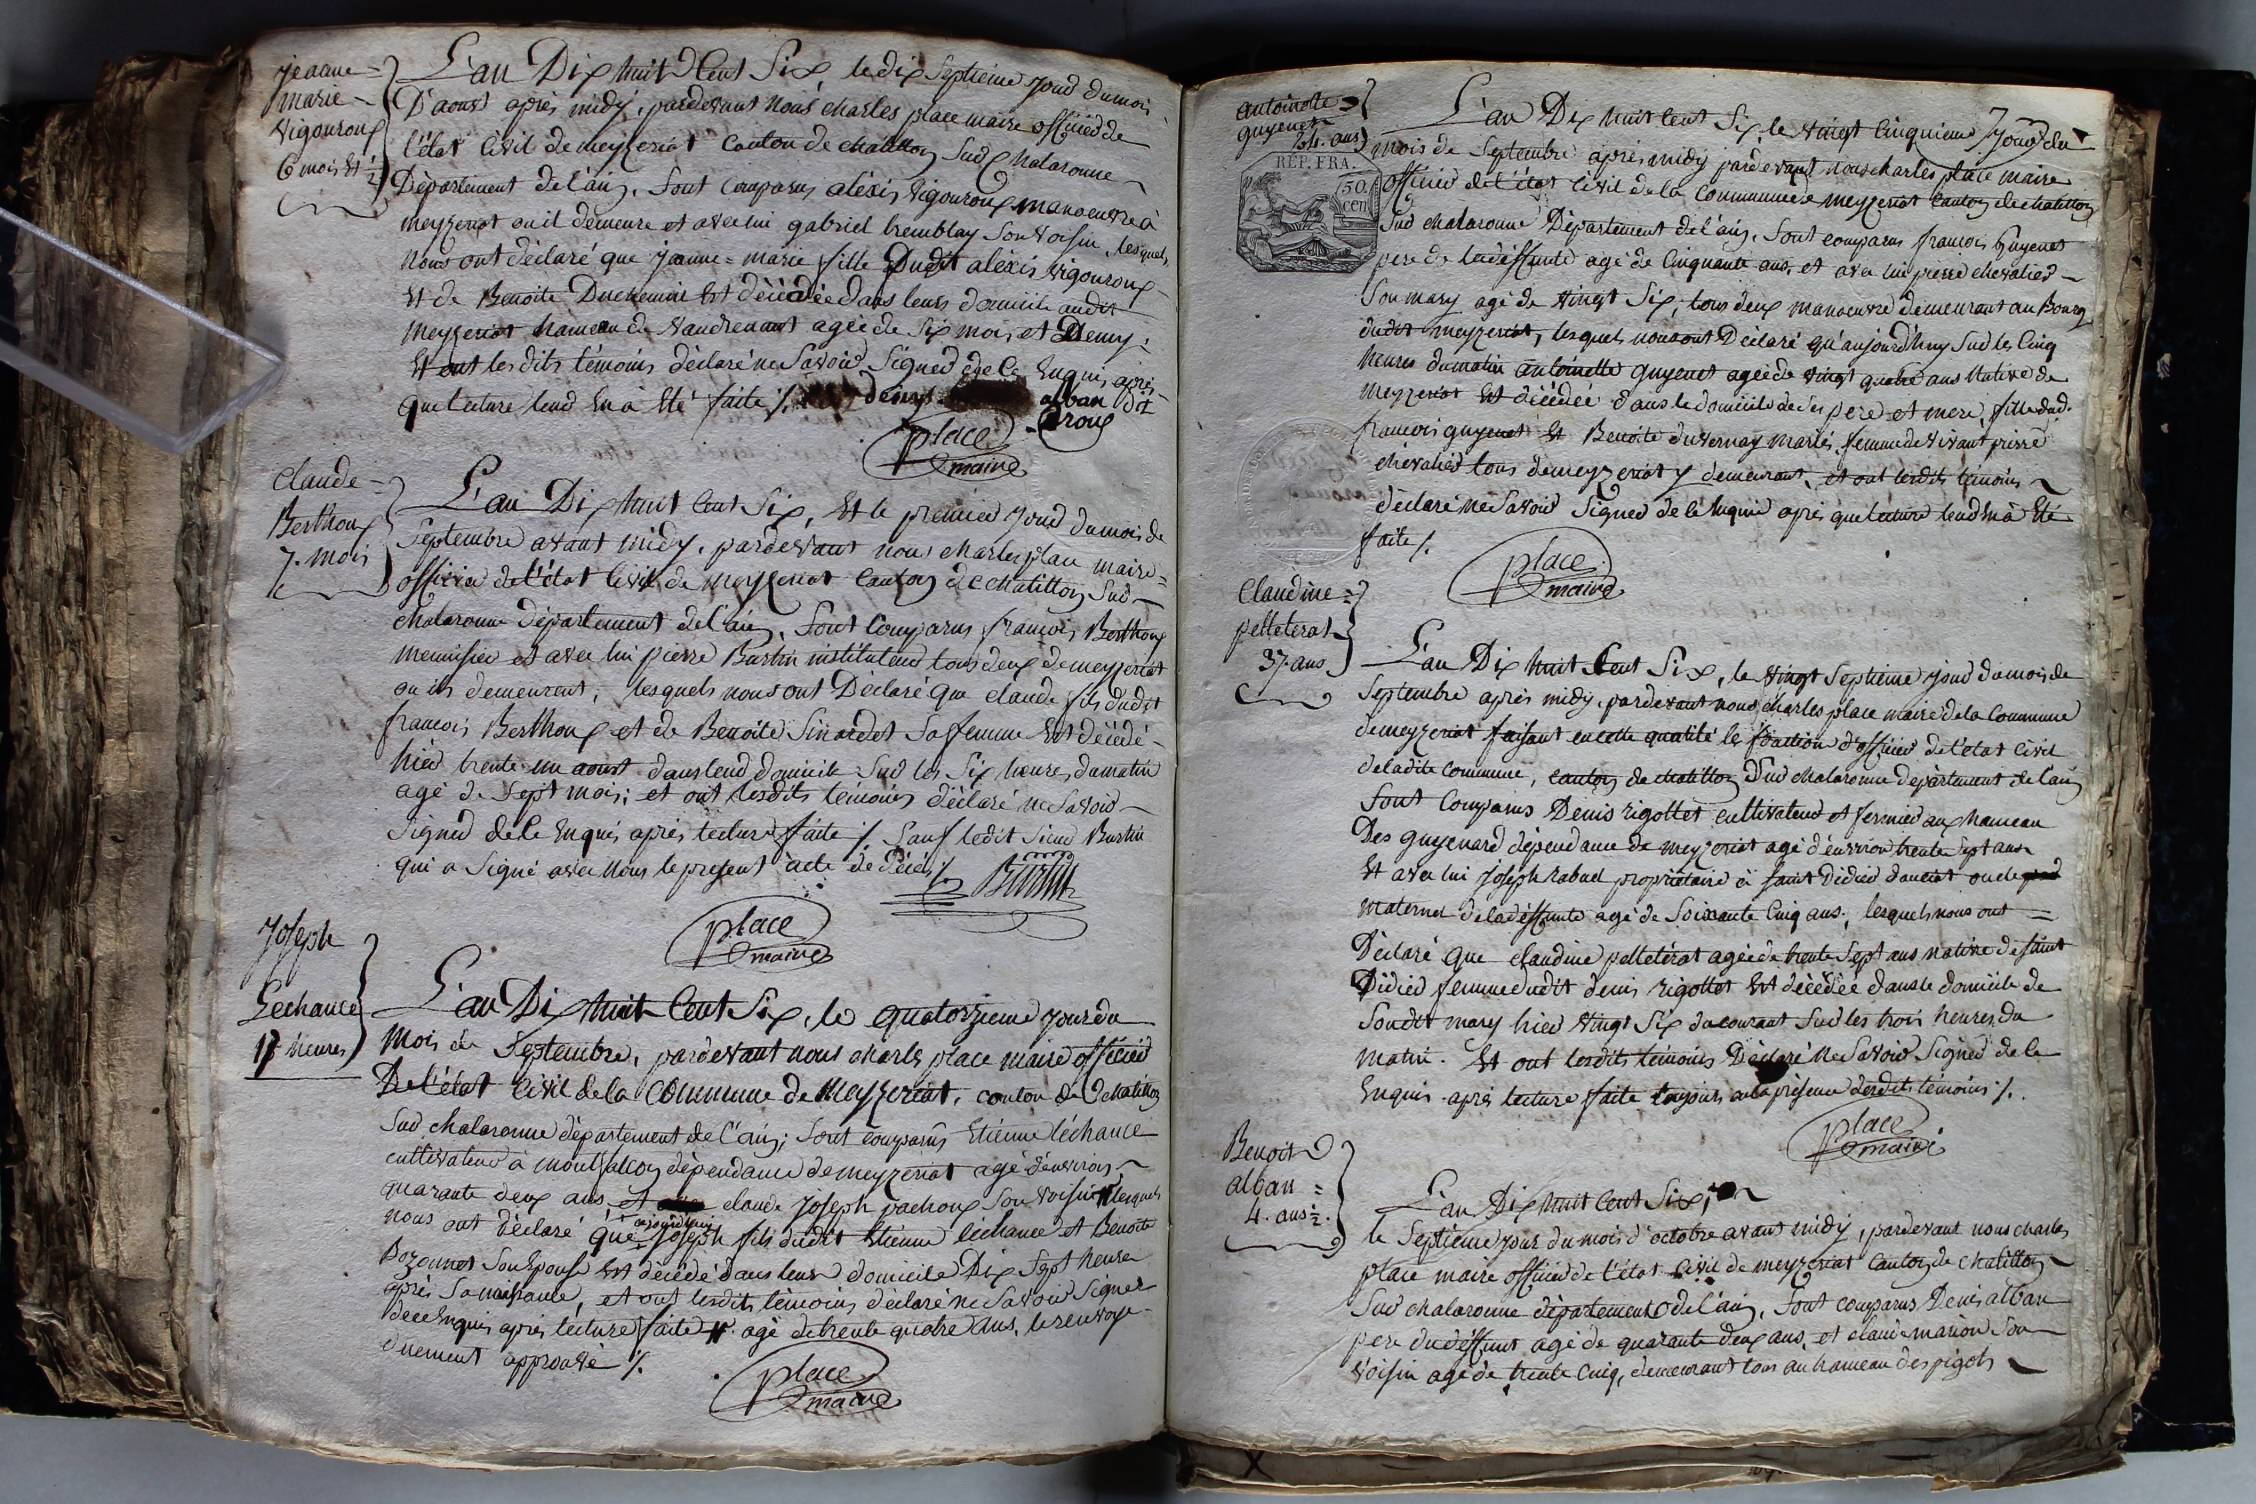 jeanne =
marie
vigouroux
6 mois et ½
L'an Dix huit Cent Six, le dix Septieme jour du mois
D'aoust après midy, pardevant nous charles place maire officier de
l'état Civil de meyzeriat Canton de chatillon Sud Chalaronne
Département de l'ain. Sont comparus aléxis vigouroux manoeuvre à
meyzeriat ou il demeure et avec lui gabriel tremblay Son voisin, lesquels
Nous ont déclaré que jeanne=marie fille Dudit aléxis vigouroux
Et de Benoite Duchemin Est décédée dans leur domicile audit
meyzeriat hameau de vaudrenant agée de Six mois et Demy.
Et ont les dits témoins déclaré ne Savoir Signer de ce Enquis après
que lecture leur En à Eté faite ./. denys alban dit
Croux
place
maire
Claude =
Berthoux
7. mois
L'an Dix huit Cent Six, Et le premier jour du mois de
Septembre avant midy, pardevant nous charles place maire =
officier de l'état Civil de meyzeriat Canton de chatillon Sud
chalaronne département de l'ain, Sont Comparus françois Berthoux
menuisier et avec lui pierre Burtin instituteur tous deux de meyzeriat
ou ils demeurent, lesquels nous ont Déclaré que claude fils dudit
françois Berthoux et de Benoite Sirardet Sa femme Est décédé
hier trente un aoust dans leur domicile Sur les Six heures du matin
agé de Sept mois; et ont lesdits témoins déclaré ne Savoir
Signer de ce Enquis après lecture faite ./. Sauf ledit Sieur Burtin
qui a Signé avec Nous le present acte de Décés ./. Burtin
place
maire
Joseph
Lechance
17 heures
L'an Dix huit Cent Six, le quatorzieme jour du
Mois de Septembre, pardevant nous charles place maire officier
De l'état Civil de la Commune de Meyzeriat, canton de Chatillon
Sud chalaronne département de l'ain; Sont comparus Etienne léchance
cultivateur à montfalcon dépendance de meyzeriat agé d'environ
quarante deux ans, et claude Joseph pachoux Son voisin lesquels
nous ont déclaré que aujourd'huy Joseph fils dudit Etienne léchance et Benoite
Bozonnet Son Epouse Est décédé dans leur domicile Dix Sept heures
après Sa naissance, et ont lesdits témoins déclaré ne Savoir Signer
de ce Enquis après lecture faite agé de trente quatre ans, le renvoy
duement approuvé ./.
place
maire
antoinette
guyenet
24. ans
REP. FRA.
50
cen.
L'an Dix huit Cent Six, le vingt Cinquieme jour du
mois de Septembre après midy pardevant nous charles place maire
officier de l'état Civil de la commune de meyzeriat Canton de chatillon
Sud chalaronne Département de l'ain, Sont comparus françois Guyenet
pere de la déffunte agé de Cinquante ans, et avec lui pierre chevalier
Son mary agé de vingt Six, tous deux manoeuvre demeurant au Bourg
dudit meyzeriat, lesquels nous ont Déclaré qu'aujourd'huy Sur les Cinq
heures du matin antoinette guyenet agée de vingt quatre ans Native de
Meyzeriat Est décédée dans le domicile de Ses pere et mere, fille dud.
francois guyenet Et Benoite duvernay mariés, femme de vivant pierre
chevalier tous de meyzeriat y demeurant, et ont lesdits témoins
déclaré ne Savoir Signer de ce Enquis après que lecture leur En à Eté
faite ./.
place
maire
Claudine =
pelleterat
37. ans
L'an Dix huit Cent Six, le vingt Septieme jour du mois de
Septembre après midy, pardevant nous charles place maire de la Commune
de meyzeriat faisant en cette qualité les fonction d'officier de l'état Civil
de ladite Commune, canton de chatillon Sud chalaronne département de l'ain
Sont Comparus Denis rigottet cultivateur et fermier aux hameau
Des guyenard dépendance de meyzeriat agé d'environ trente Sept ans
Et avec lui Joseph rabuel propriétaire à Saint Didier d'aussiat oncle
maternel de la déffunte agé de Soixante Cinq ans, lesquels nous ont =
Déclaré que claudine pelleterat agée de trente Sept ans native de Saint
Didier femme dudit denis rigottet Est décédée dans le domicile de
Sondit mary hier vingt Six du courant Sur les trois heures du
matin. Et ont lesdits témoins Déclaré Ne Savoir Signer de ce
Enquis après lecture faite toujours en la présence desdits témoins ./.
place
maire
Benoit
alban =
4. ans ½.
L'an Dix huit Cent Six,
le Septieme jour du mois d'octobre avant midy, pardevant nous charles
place maire officier de l'état Civil de meyzeriat Canton de chatillon
Sud chalaronne département de l'ain, Sont comparus Denis alban
pere du déffunt agé de quarante deux ans, et claude marion Son
voisin agé de trente Cinq, demeurant tous au hameau des pigets